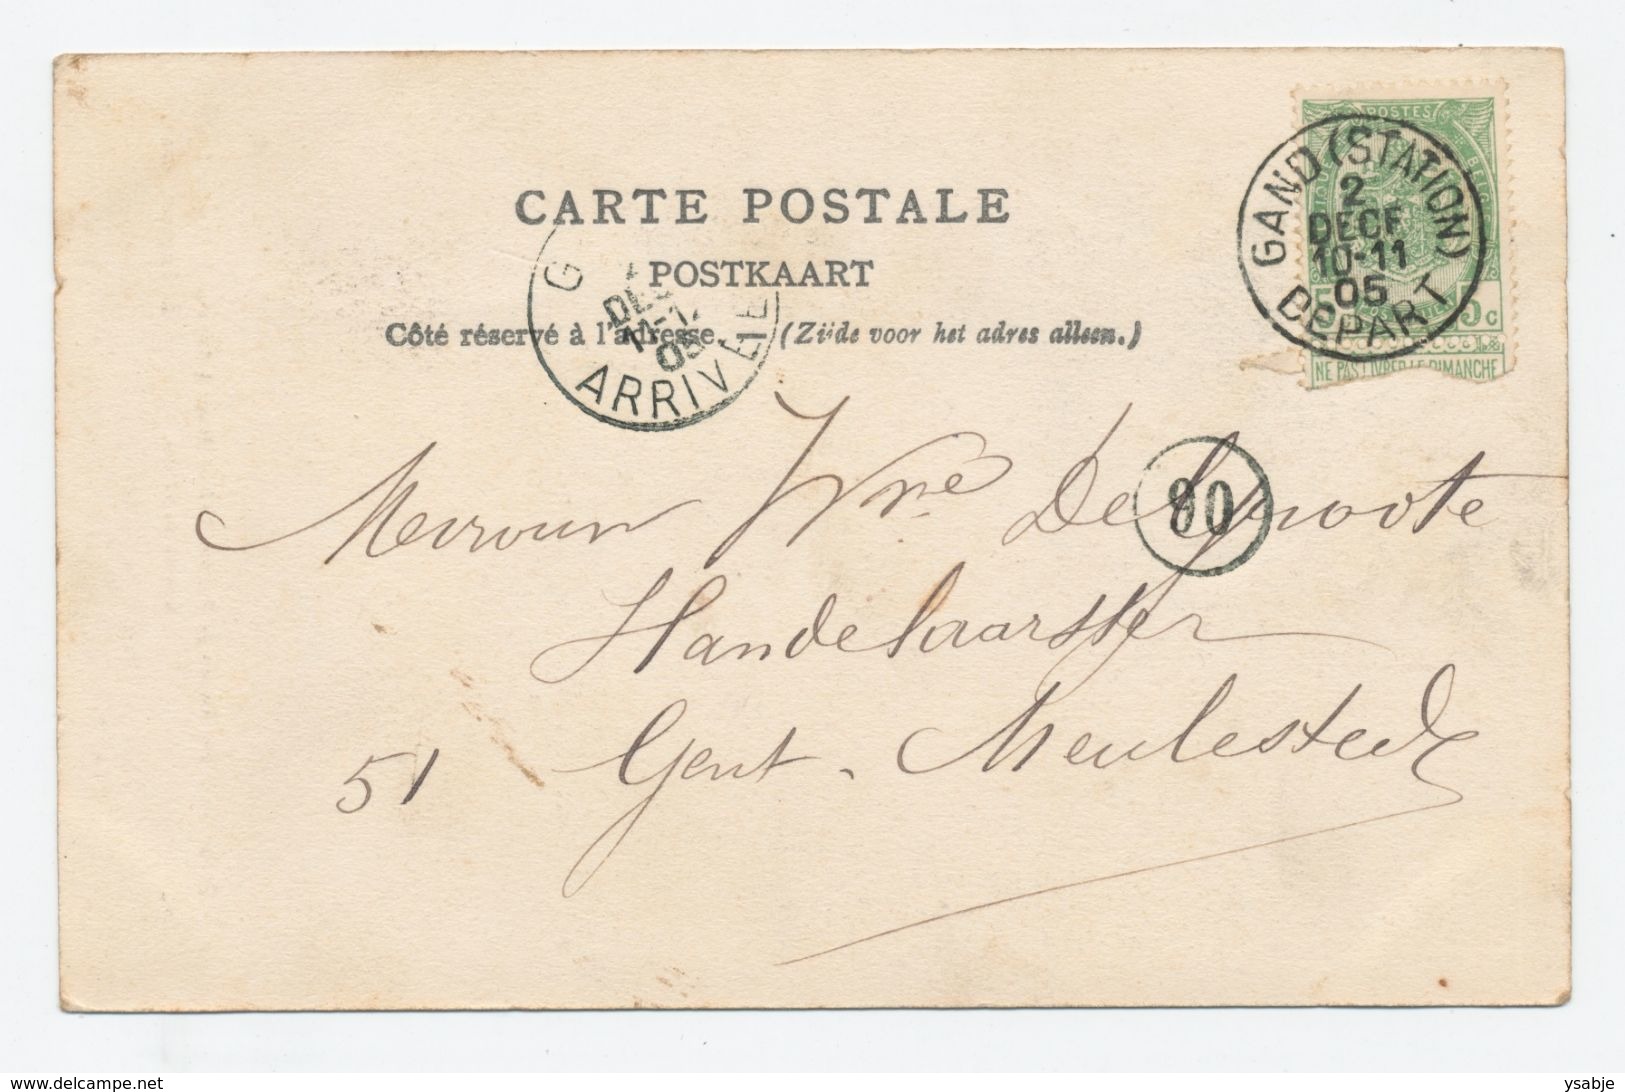 CARTE POSTALE
POSTKAART
Côté réservé à l'adresse. (Zijde voor het adres alleen.)
POSTES
5 5c
NE PAS LIVRER LE DIMANCHE
GAND (STATION)
2
DECE
10-11
05
DEPART
G
DEC
11-1
05
ARRIVEE
90
Mevrouw Wwe De Groote
Handelaarster
51 Gent. Meulestede
www.delcampe.net
ysabje